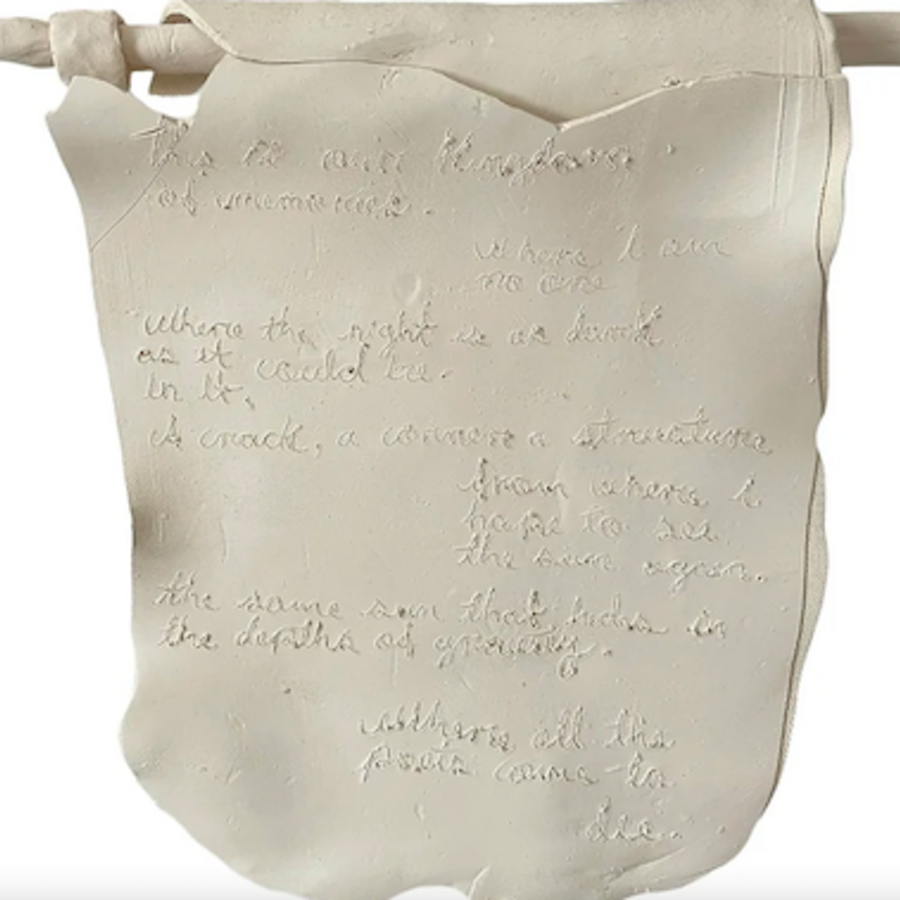 this is our Kingdom
of memories.
where I am
no one
where the night is as dark
as it could be.
in it,
A crack, a corner a structure
from where I
hope to see
the sun again.
the same sun that hides in
the depths of gravity.
where all the
poets come to
die.